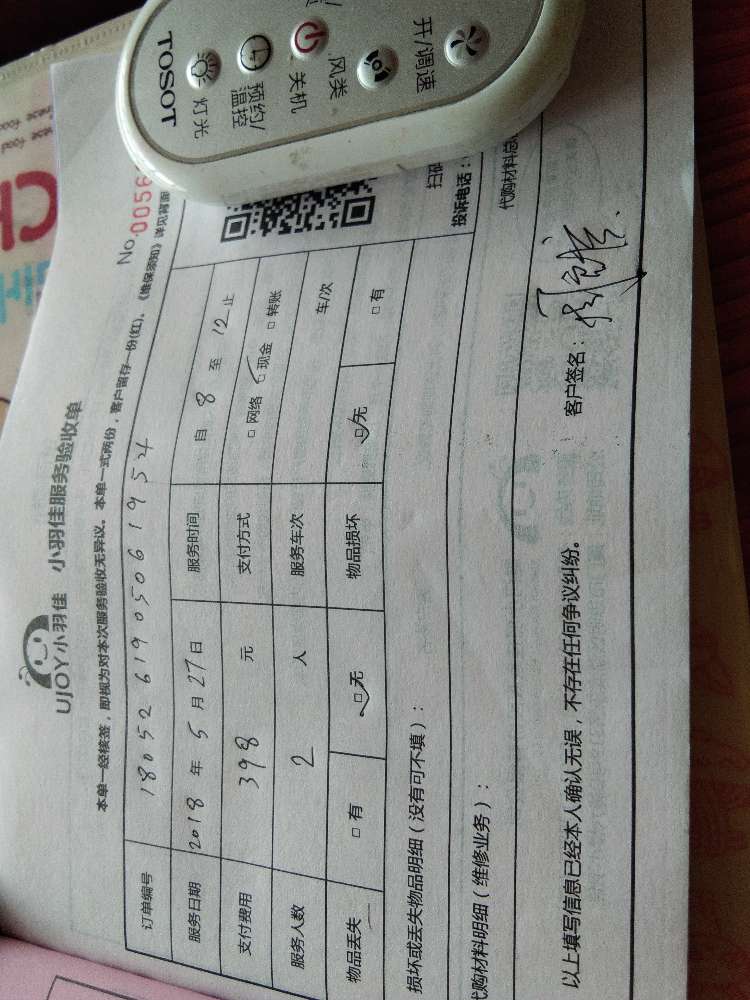 UJOY小羽佳 小羽佳服务验收单
No.0056
本单一经核签，即视为对本次服务验收无异议。本单一式两份，客户留存一份(红)。《维保须知》详见背面
订单编号 180526190506 1954
服务日期 2018年5月27日 服务时间 自8至12止
支付费用 398 元 支付方式 □网络 □现金 □转账
服务人数 2 人 服务车次 车/次
物品丢失 □有 □无 物品损坏 □无 □有
损坏或丢失物品明细（没有可不填）：
扫码
投诉电话：
代购材料明细（维修业务）：
代购材料总
以上填写信息已经本人确认无误，不存在任何争议纠纷。 客户签名：
开/调速
风类
关机
预约/温控
灯光
TOSOT